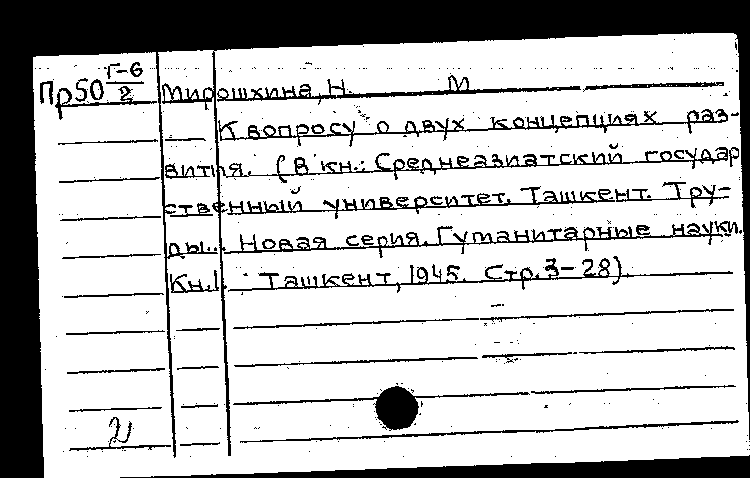 Пр50 Г-6/2 Мирошхина, Н. М
К вопросу о двух концепциях раз-
вития. (В кн.: Среднеазиатский государ
ственный университет. Ташкент. Тру-
ды... Новая серия. Гуманитарные науки.
Кн.1. Ташкент, 1945. Стр.3-28).